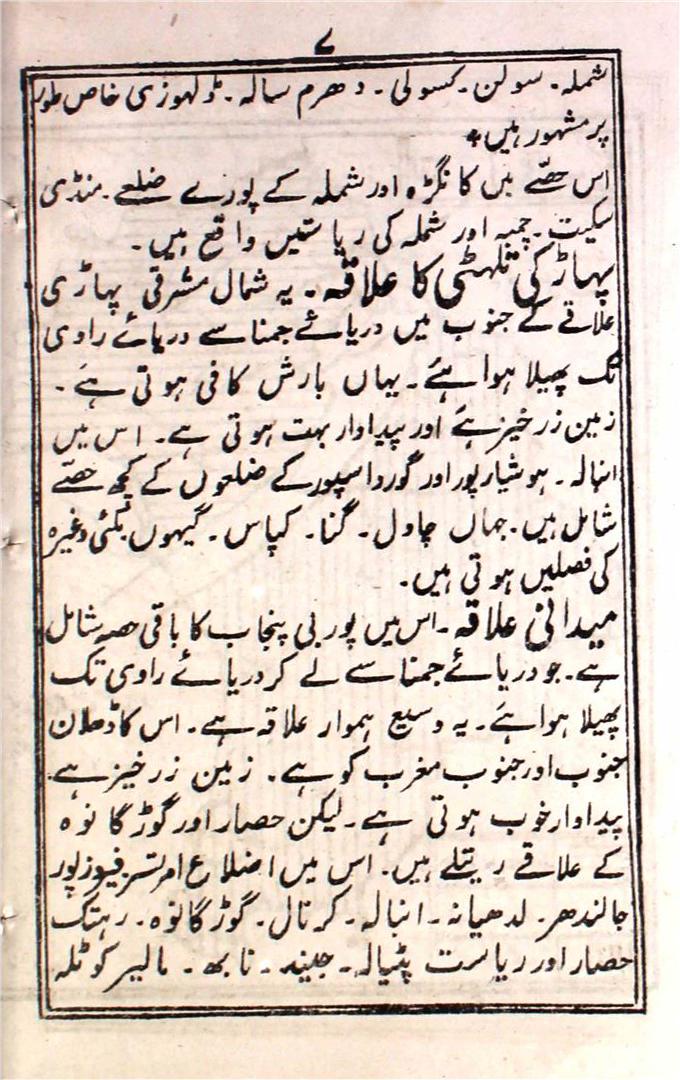 ۷
شملہ۔ سولن۔ کسولی۔ دھرم سالہ۔ ڈلہوزی خاص طور
پر مشہور ہیں٭
اس حصّے میں کانگڑہ اور شملہ کے پورے ضلعے۔ منڈی
سکیت۔ چمبہ اور شملہ کی ریاستیں واقع ہیں۔
پہاڑ کی تلہٹی کا علاقہ۔ یہ شمال مشرقی پہاڑی
علاقے کے جنوب میں دریائے جمنا سے دریائے راوی
تک پھیلا ہوا ہے۔ یہاں بارش کافی ہوتی ہے۔
زمین زرخیز ہے اور پیداوار بہت ہوتی ہے۔ اس میں
انبالہ۔ ہوشیارپور اور گورداسپور کے ضلعوں کے کچھ حصّے
شامل ہیں۔ جہاں چاول۔ گنا۔ کپاس۔ گیہوں مکئی وغیرہ
کی فصلیں ہوتی ہیں۔
میدانی علاقہ۔ اس میں پوربی پنجاب کا باقی حصہ شامل
ہے۔ جو دریائے جمنا سے لے کر دریائے راوی تک
پھیلا ہوا ہے۔ یہ وسیع ہموار علاقہ ہے۔ اس کا ڈھلان
جنوب اور جنوب مغرب کو ہے۔ زمین زرخیز ہے
پیداوار خوب ہوتی ہے۔ لیکن حصار اور گوڑگانوہ
کے علاقے ریتلے ہیں۔ اس میں اضلاع امرتسر فیروزپور
جالندھر۔ لدھیانہ۔ انبالہ۔ کرنال۔ گوڑگانوہ۔ رہتک
حصار اور ریاست پٹیالہ۔ جیند۔ نابھہ۔ مالیر کوٹلہ